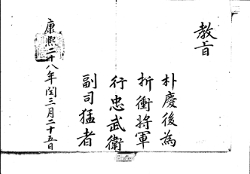 教旨
朴慶後為
折衝將軍
行忠武衛
副司猛者
康熙二十八年閏三月二十五日